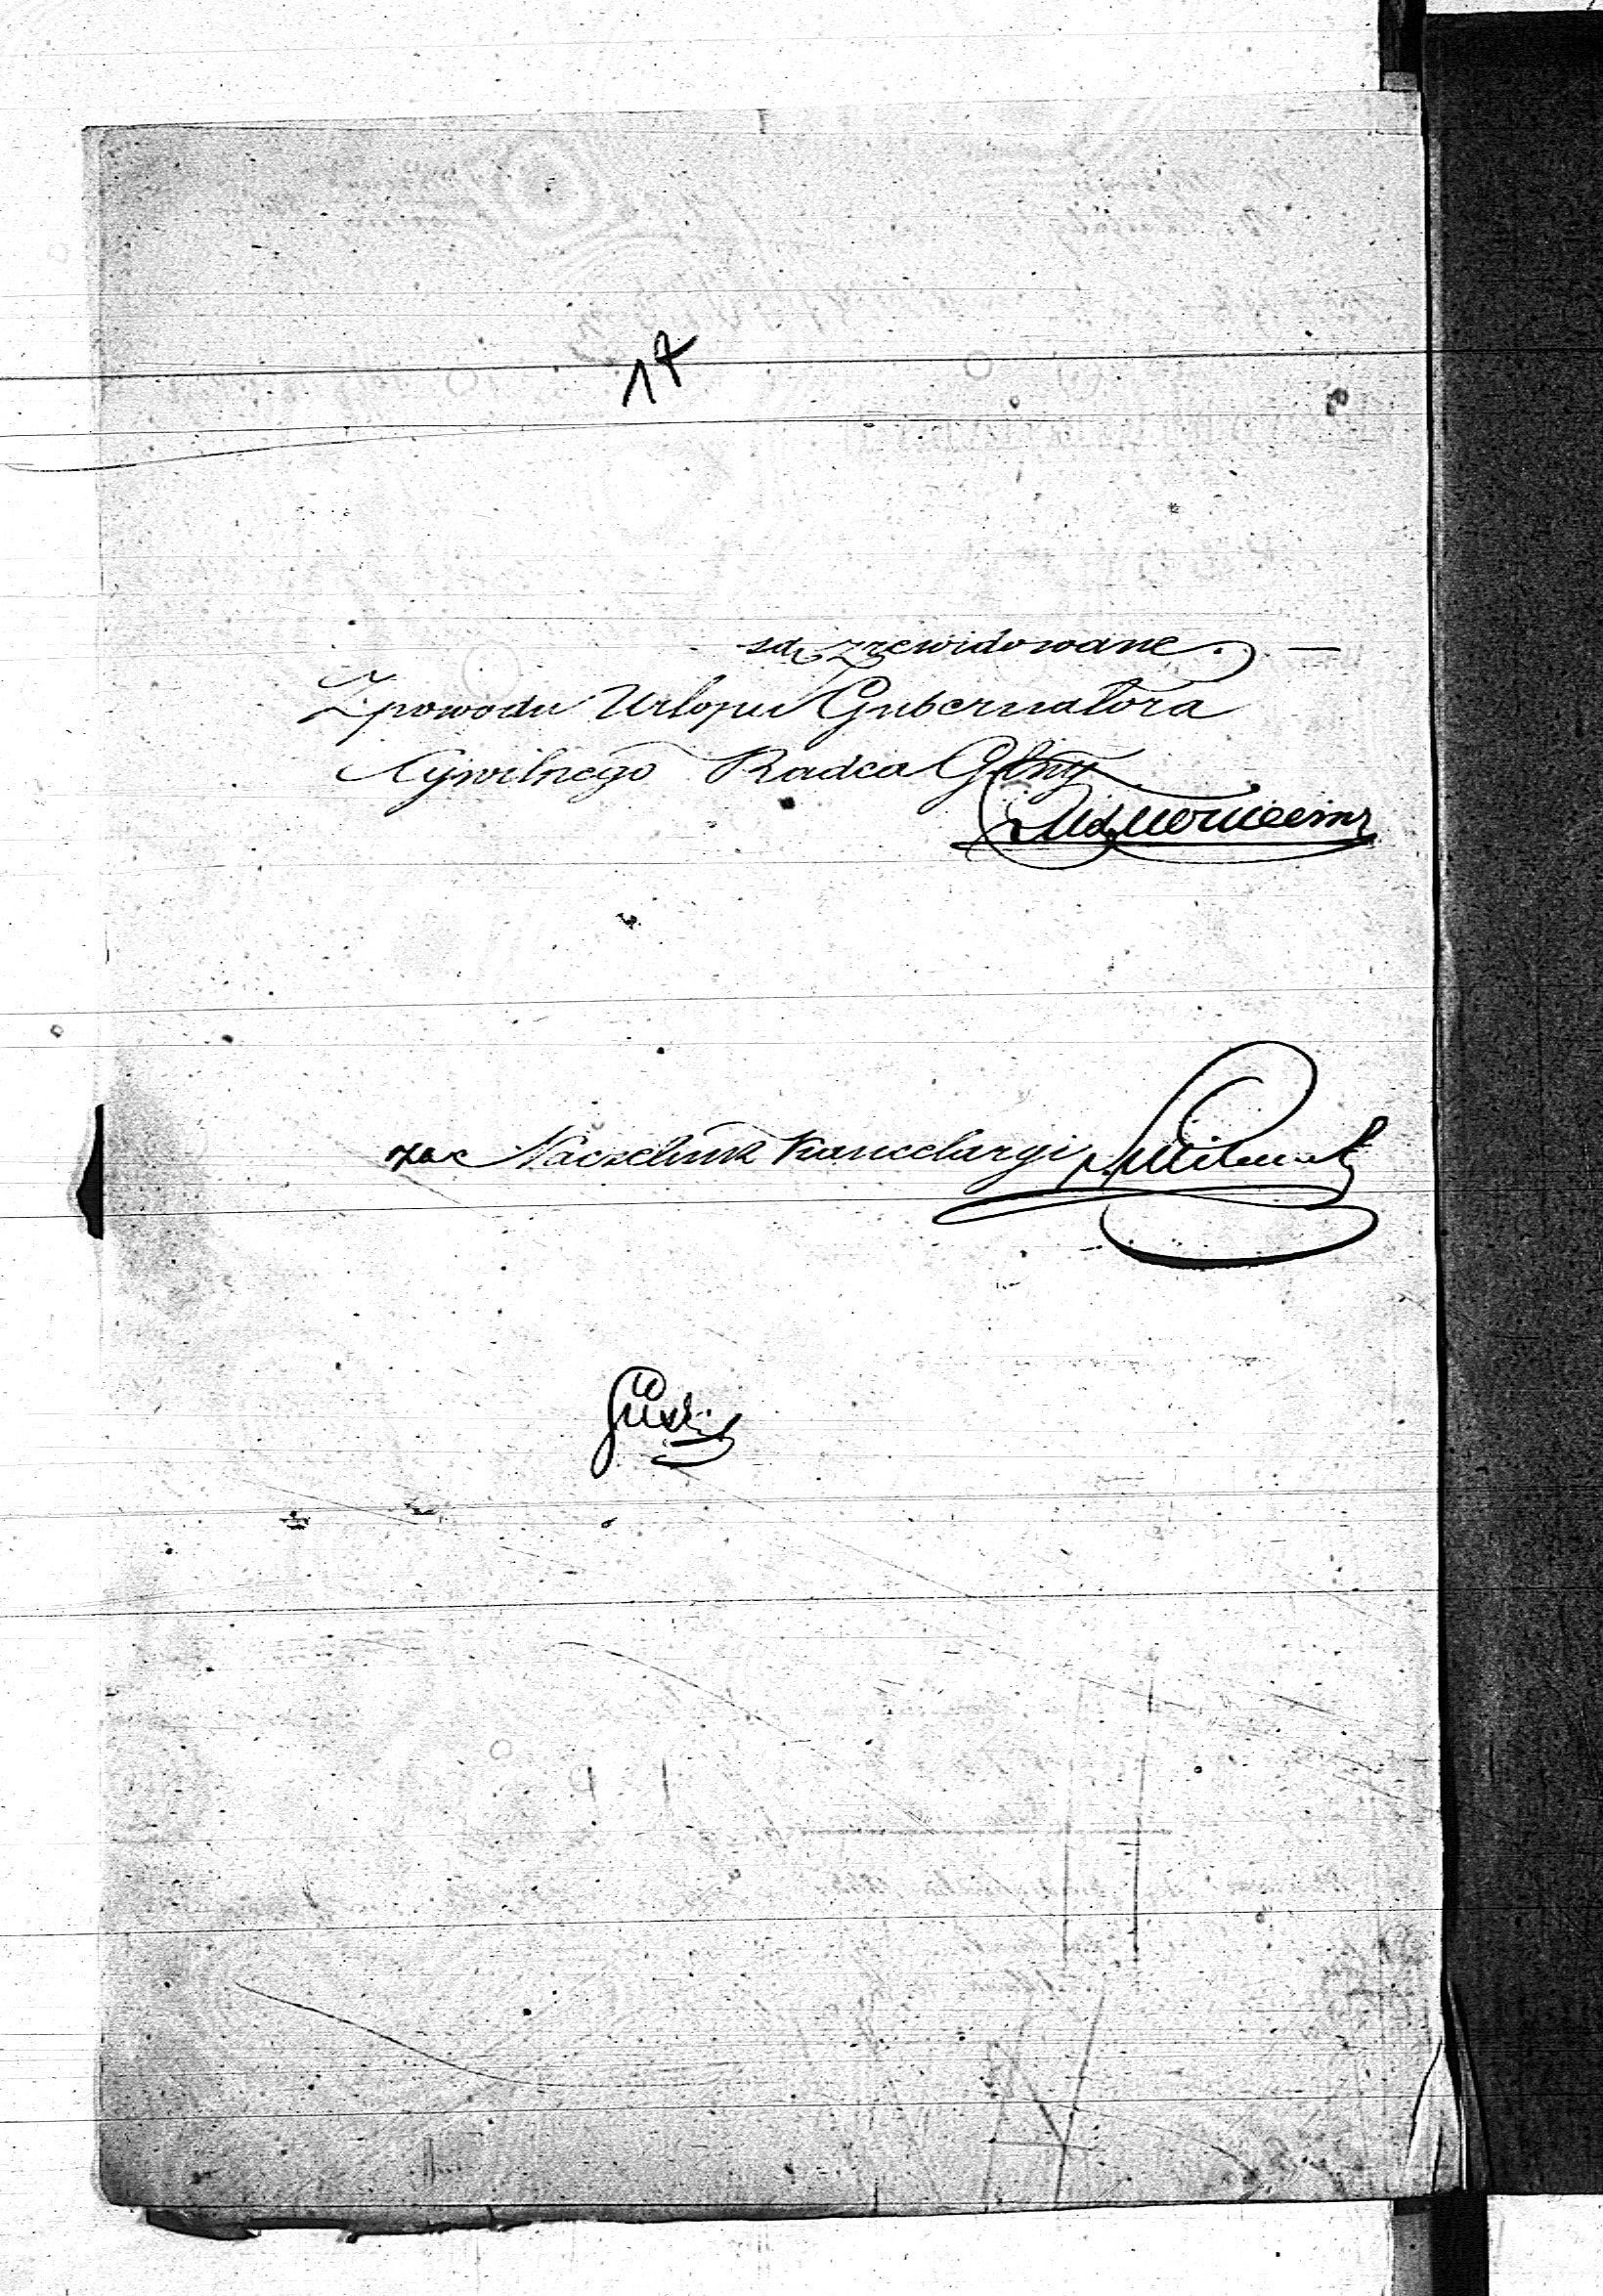 17
są zrewidowane. —
Z powodu Urlopu Gubernatora
Cywilnego Radca Glny
Naczelnik Kancelaryi